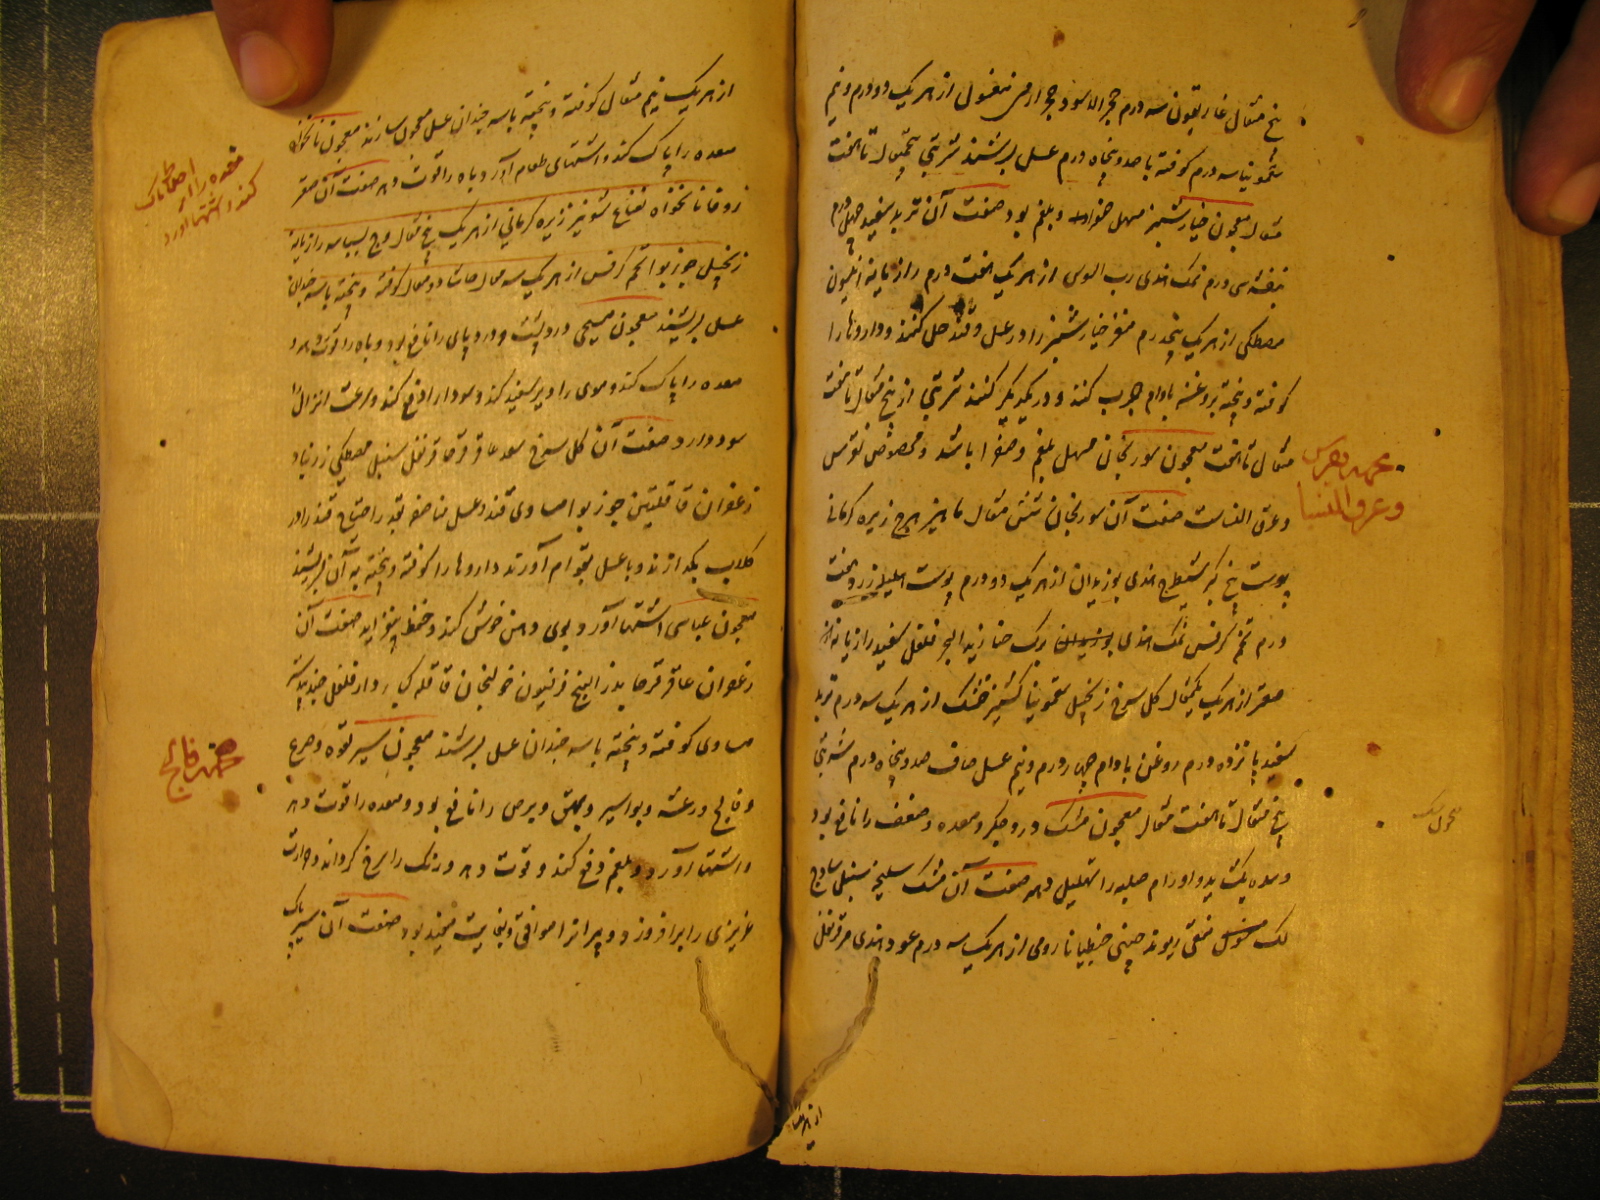 پنج مثقال غاریقون سه درم حجر الاسود حجر ارمنی مغسول از هر یک دو درم و نیم
سقمونیا سه درم کوفته با صد و پنجاه درم عسل بسرشند شربتی پنج مثقال تا هفت
مثقال معجون خیارشنبر مسهل صفرا و بلغم بود صفت آن تربد سفید چهل درم
بنفشه سی درم نمک هندی رب السوس از هر یک هفت درم رازیانه انیسون
مصطکی از هر یک پنجدرم مغز خیارشنبر را در عسل و قند حل کنند و داروها را
کوفته و بیخته بروغن بادام چرب کنند و در یکدیگر کنند شربتی از پنج مثقال تا هفت
مثقال تا هفت معجون سورنجان مسهل بلغم و صفرا باشد و مخصوص نقرس
و عرق النساست صفت آن سورنجان شش مثقال ماهیزهرج زیره کرمانی
پوست بیخ کبر شیطرج هندی بوزیدان از هر یک دو درم پوست هلیله زرد هفت
درم تخم کرفس نمک هندی بوزیدان برک حنا زبد البحر فلفل سفید رازیانه
صعتر از هر یک یکمثقال کل سرخ زنجبیل سقمونیا کشنیز خشک از هر یک سه درم تربد
سفید پانزده درم روغن بادام چهار درم و نیم عسل صاف صد و پنجاه درم شربتی
پنج مثقال تا هفت مثقال معجون مشک درد جکر و معده و ضعف را نافع بود
و سده بکشاید و اورام صلبه را تحلیل دهد صفت آن مشک سلیخه سنبل ساذج
لک مغسول منقی ریوند چینی جنطیانا رومی از هر یک سه درم عود هندی مر قرنفل
نقرس
و عرق النسا
از هر یک
از هر یک نیم مثقال کوفته و بیخته با سه چندان عسل معجون سازند معجون نانخواه
معده را پاک کند و اشتهای طعام آرد و باه را قوت دهد صفت آن صعتر
زوفا نانخواه نعناع شونیز زیره کرمانی از هر یک پنج مثقال وج بسباسه رازیانه
زنجبیل جوز بوا تخم کرفس از هر یک سه مثقال حاشا دو مثقال کوفته و بیخته با سه چندان
عسل بسرشند معجون مسیحی درد پشت و درد پای را نافع بود و باه را قوت دهد
معده را پاک کند و موی را دیر سفید کند و سودا را دفع کند و سرعت انزال را
سود دارد صفت آن کل سرخ سعد عاقرقرحا قرنفل سنبل مصطکی زرنباد
زعفران قاقلتین جوز بوا مساوی قند و عسل مناصفه بقدر احتیاج قند را در
کلاب بکدازند و با عسل بقوام آورند داروها را کوفته و بیخته به آن بسرشند
معجون عباسی اشتها آورد و بوی دهن خوش کند و حفظ بیفزاید صفت آن
زعفران عاقرقرحا بذر البنج فرفیون خولنجان قاقله کبار دارفلفل جندبیدستر
مساوی کوفته و بیخته با سه چندان عسل بسرشند معجون سیر لقوه و صرع
و فالج و رعشه و بواسیر و بهق و برص را نافع بود و معده را قوت دهد
و اشتها آورد و بلغم دفع کند و قوت دهد و رنک را سرخ کرداند و حرارت
غریزی را برافروزد و پیرانرا موافق و بغایت مفید بود صفت آن سیر پاک
معده را از
کند و اشتها آورد
جهت فالج